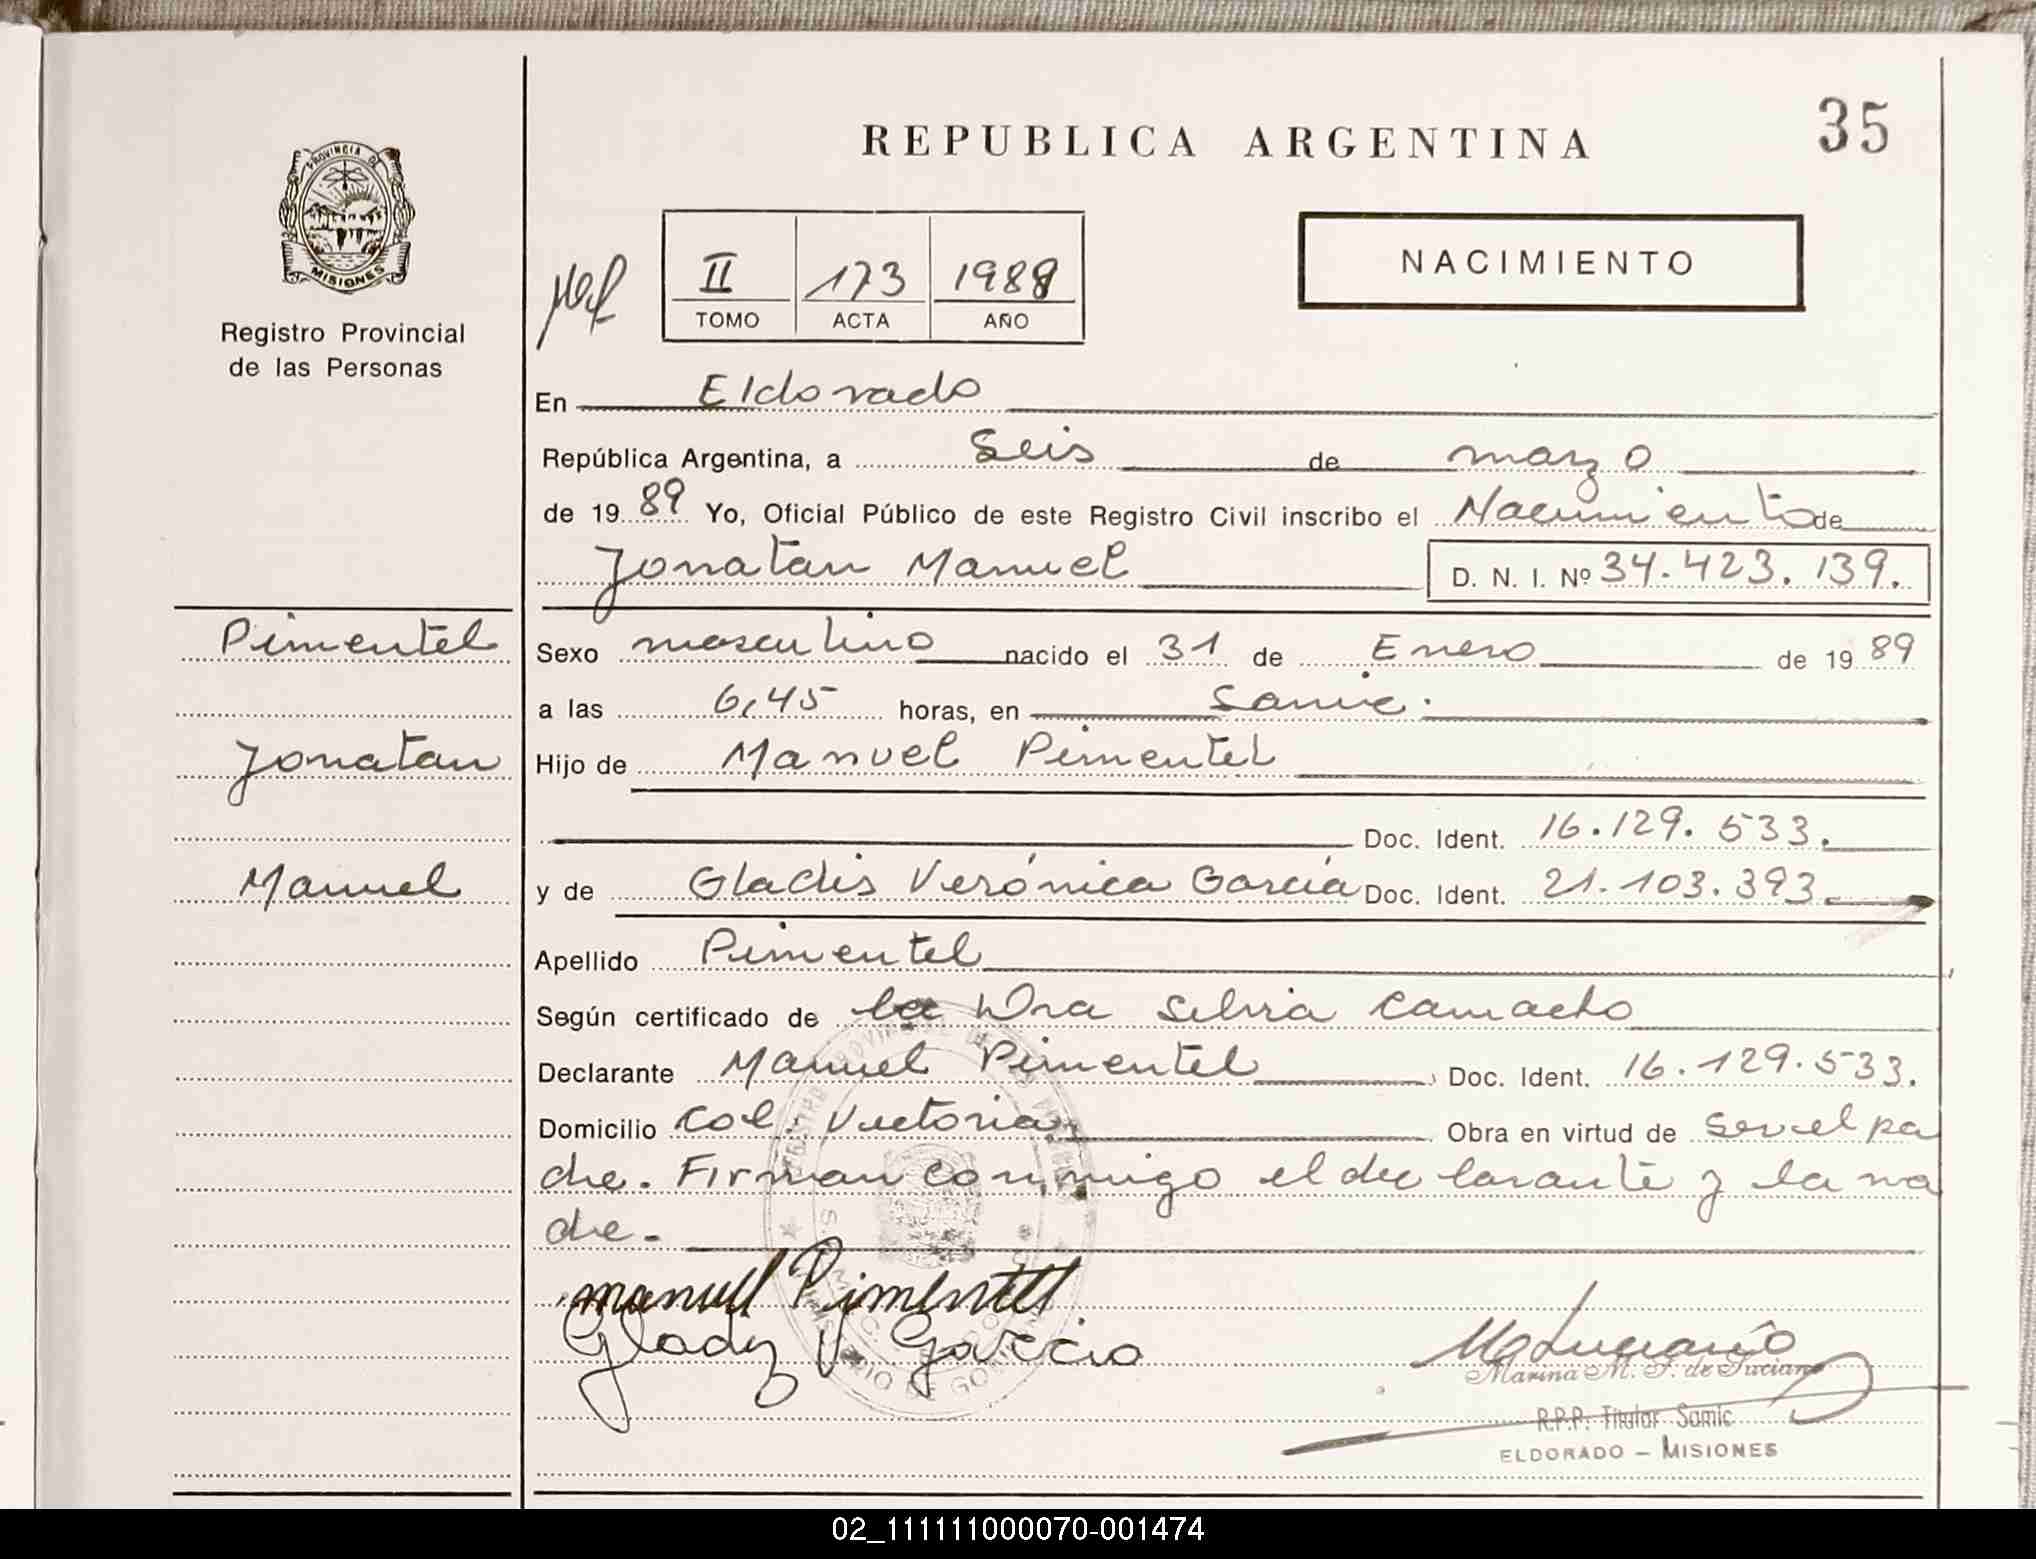 REPUBLICA ARGENTINA
35
PROVINCIA D
MISIONES
Registro Provincial
de las Personas
II 173 1989
TOMO ACTA AÑO
NACIMIENTO
En Eldorado
República Argentina, a seis de marzo
de 1989 Yo, Oficial Público de este Registro Civil inscribo el Nacimiento de
Jonatan Manuel D. N. I. Nº 34.423.139.
Pimentel
Sexo masculino nacido el 31 de Enero de 1989
a las 6,45 horas, en Samic.
Jonatan
Hijo de Manuel Pimentel
Doc. Ident. 16.129.533.
Manuel
y de Gladis Verónica García Doc. Ident. 21.103.393.
Apellido Pimentel
Según certificado de la Dra Silvia Camacho
Declarante Manuel Pimentel Doc. Ident. 16.129.533.
Domicilio Col. Victoria Obra en virtud de ser el pa
dre. Firman conmigo el declarante y la ma
dre.
manuel Pimentel
Glady V Garcia
Marina M. F. de Luciano
R.P.P. Titular Samic
ELDORADO - MISIONES
02_111111000070-001474